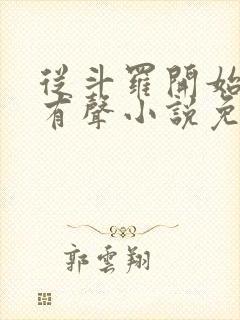 從斗羅開始
有聲小說免
郭雲翔